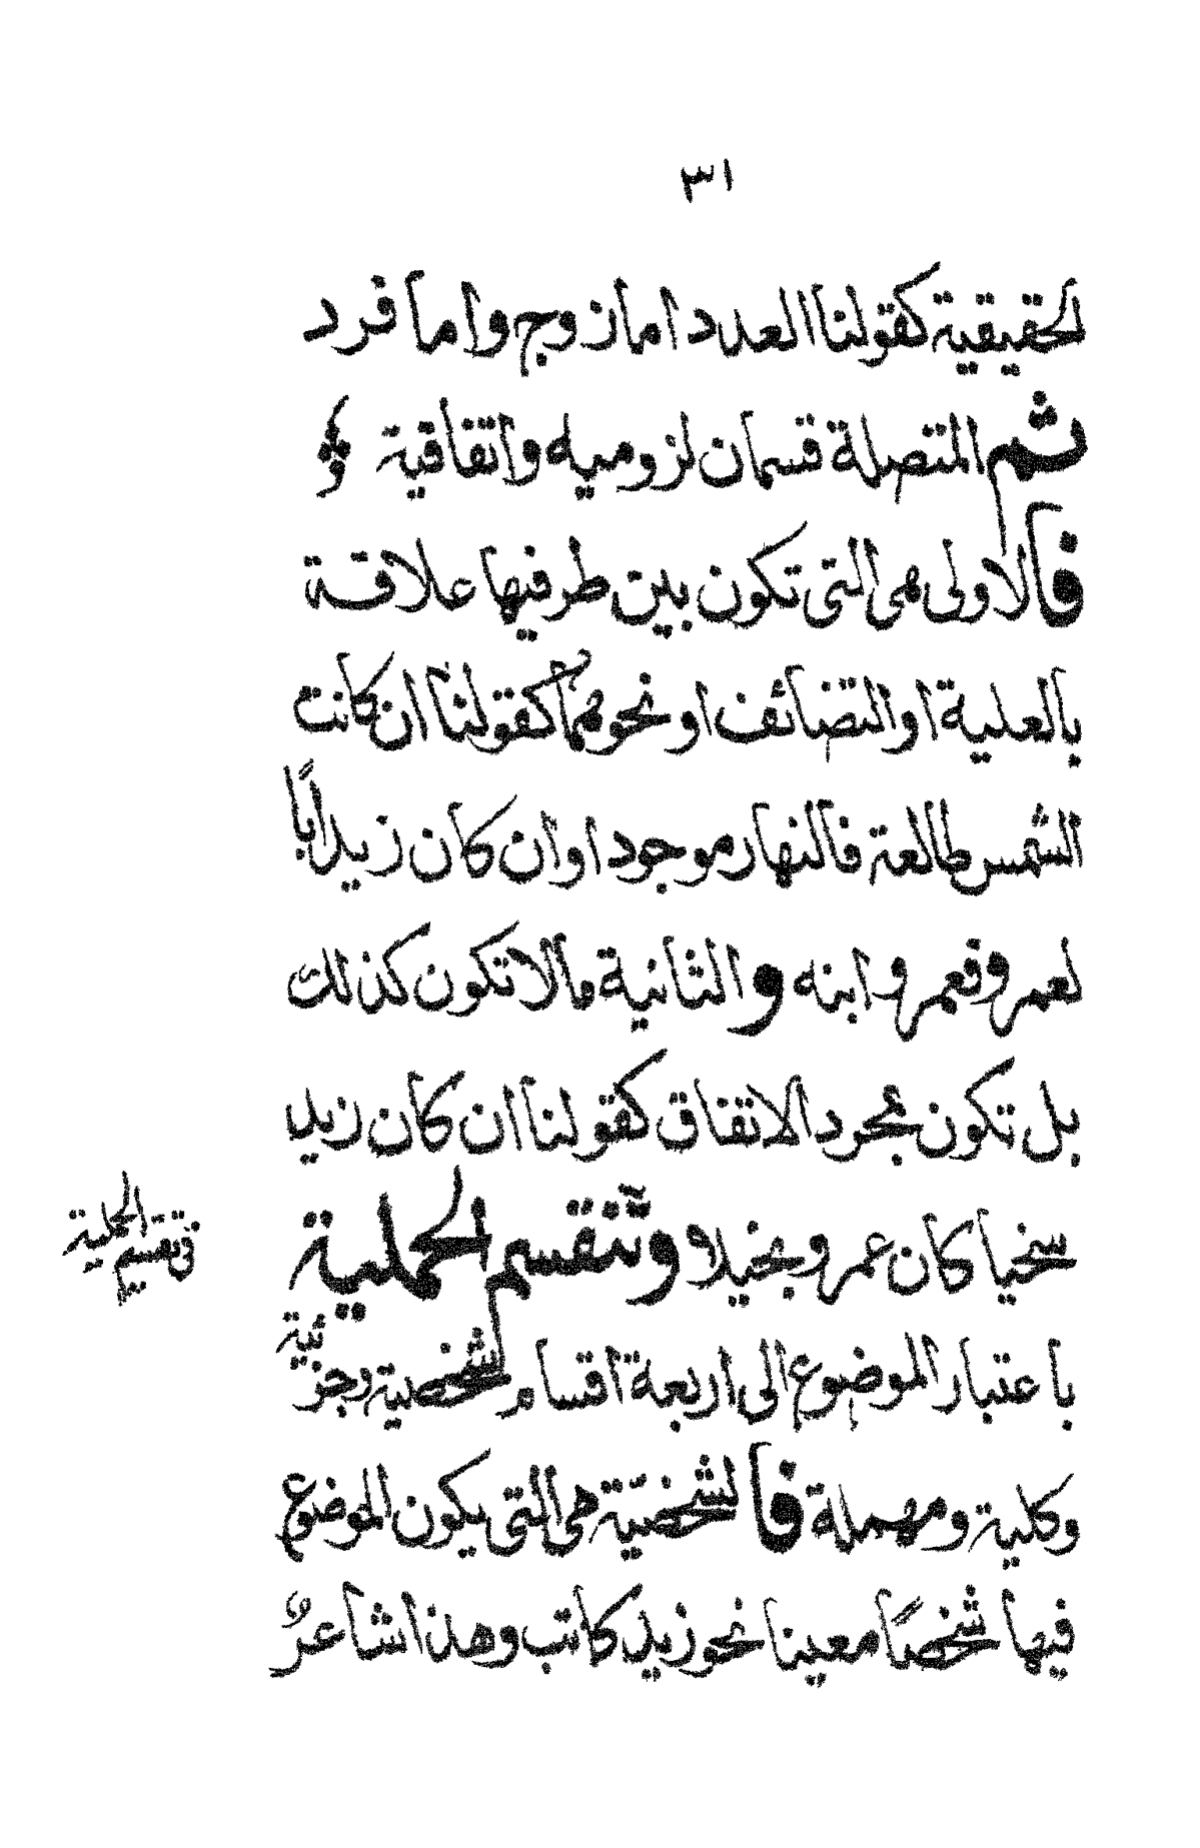 ٣١
الحقيقية كقولنا العدد اما زوج واما فرد
ثم المتصلة قسمان لزوميه واتفاقية
فالاولى هى التى تكون بين طرفيها علاقة
بالعلية او التضائف او نحوهما كقولنا ان كانت
الشمس طالعة فالنهار موجود او ان كان زيد اباً
لعمرو فعمرو ابنه والثانية مالا تكون كذلك
بل تكون بمجرد الاتفاق كقولنا ان كان زيد
سخيا كان عمرو بخيلا وتنقسم الحملية
فى تقسيم الحملية
باعتبار الموضوع الى اربعة اقسام لشخصية وجزئية
وكلية ومهملة فالشخصيّة هى التى يكون الموضوع
فيها شخصاً معينا نحو زيد كاتب وهذا شاعرٌ